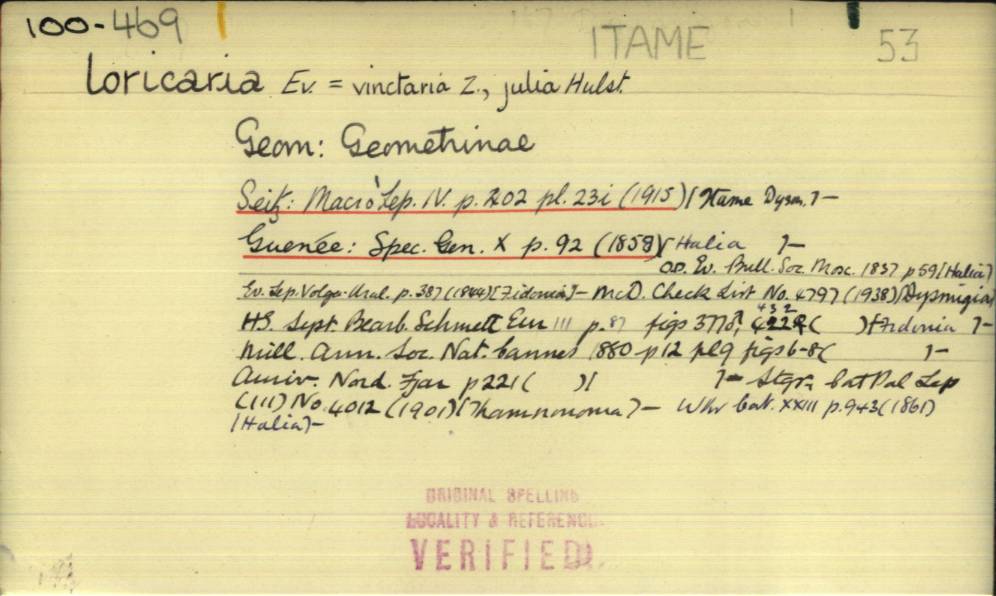 100-469
ITAME 53
loricaria Ev. = vinctaria Z., julia Hulst.
Geom: Geometrinae
Seitz: Macro Lep. IV. p. 402 pl. 23i (1915) [Itame Dysm.]-
Guenée: Spec. Gen. X p. 92 (1858) [Halia ]-
Ev. Bull. Soc. Mosc. 1837 p 59 [Halia]
Ev. Lep. Volga-Ural. p. 387 (1844) [Fidonia]- McD. Check List No. 4797 (1938) [Dysmigia]
HS. Syst. Bearb. Schmett Eur III p. 87 figs 377♂, 432 ( ) [Fidonia ]-
Mill. Ann. Soc. Nat. Cannes 1880 p 12 pl 9 figs 6-8 ( ]-
Auriv. Nord. Fjar p 221 ( ) [ ]- Stgr. Cat Pal Lep
(III) No. 4012 (1901) [Thamnonoma]- Wkr Cat. XXIII p. 943 (1861)
[Halia]-
ORIGINAL SPELLING
LOCALITY & REFERENCE
VERIFIED